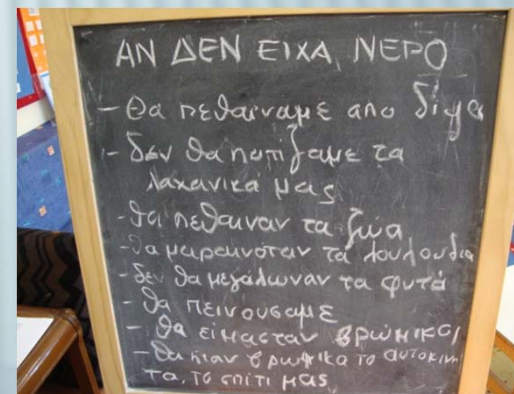 ΑΝ ΔΕΝ ΕΙΧΑ ΝΕΡΟ
- Θα πεθαιναμε απο δίψα
- δεν θα ποτίζαμε τα
λαχανικά μας
- θα πεθαιναν τα ζώα
- θα μαραινόταν τα λουλουδια
- δεν θα μεγάλωναν τα φυτά
- θα πεινουσαμε
- θα είμασταν βρώμικοι
- θα ήταν βρώμικα το αυτοκινη
τα, το σπίτι μας